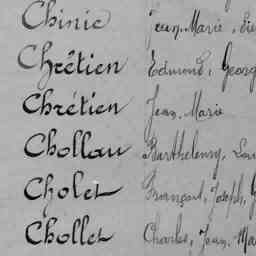 Chinic Jean-Marie,
Chrêtien Edmond, Georg
Chrétien Jean Marie
Chollau Barthelemy, Lou
Cholet François, Joseph, G
Chollet Charles, Jean-Ma